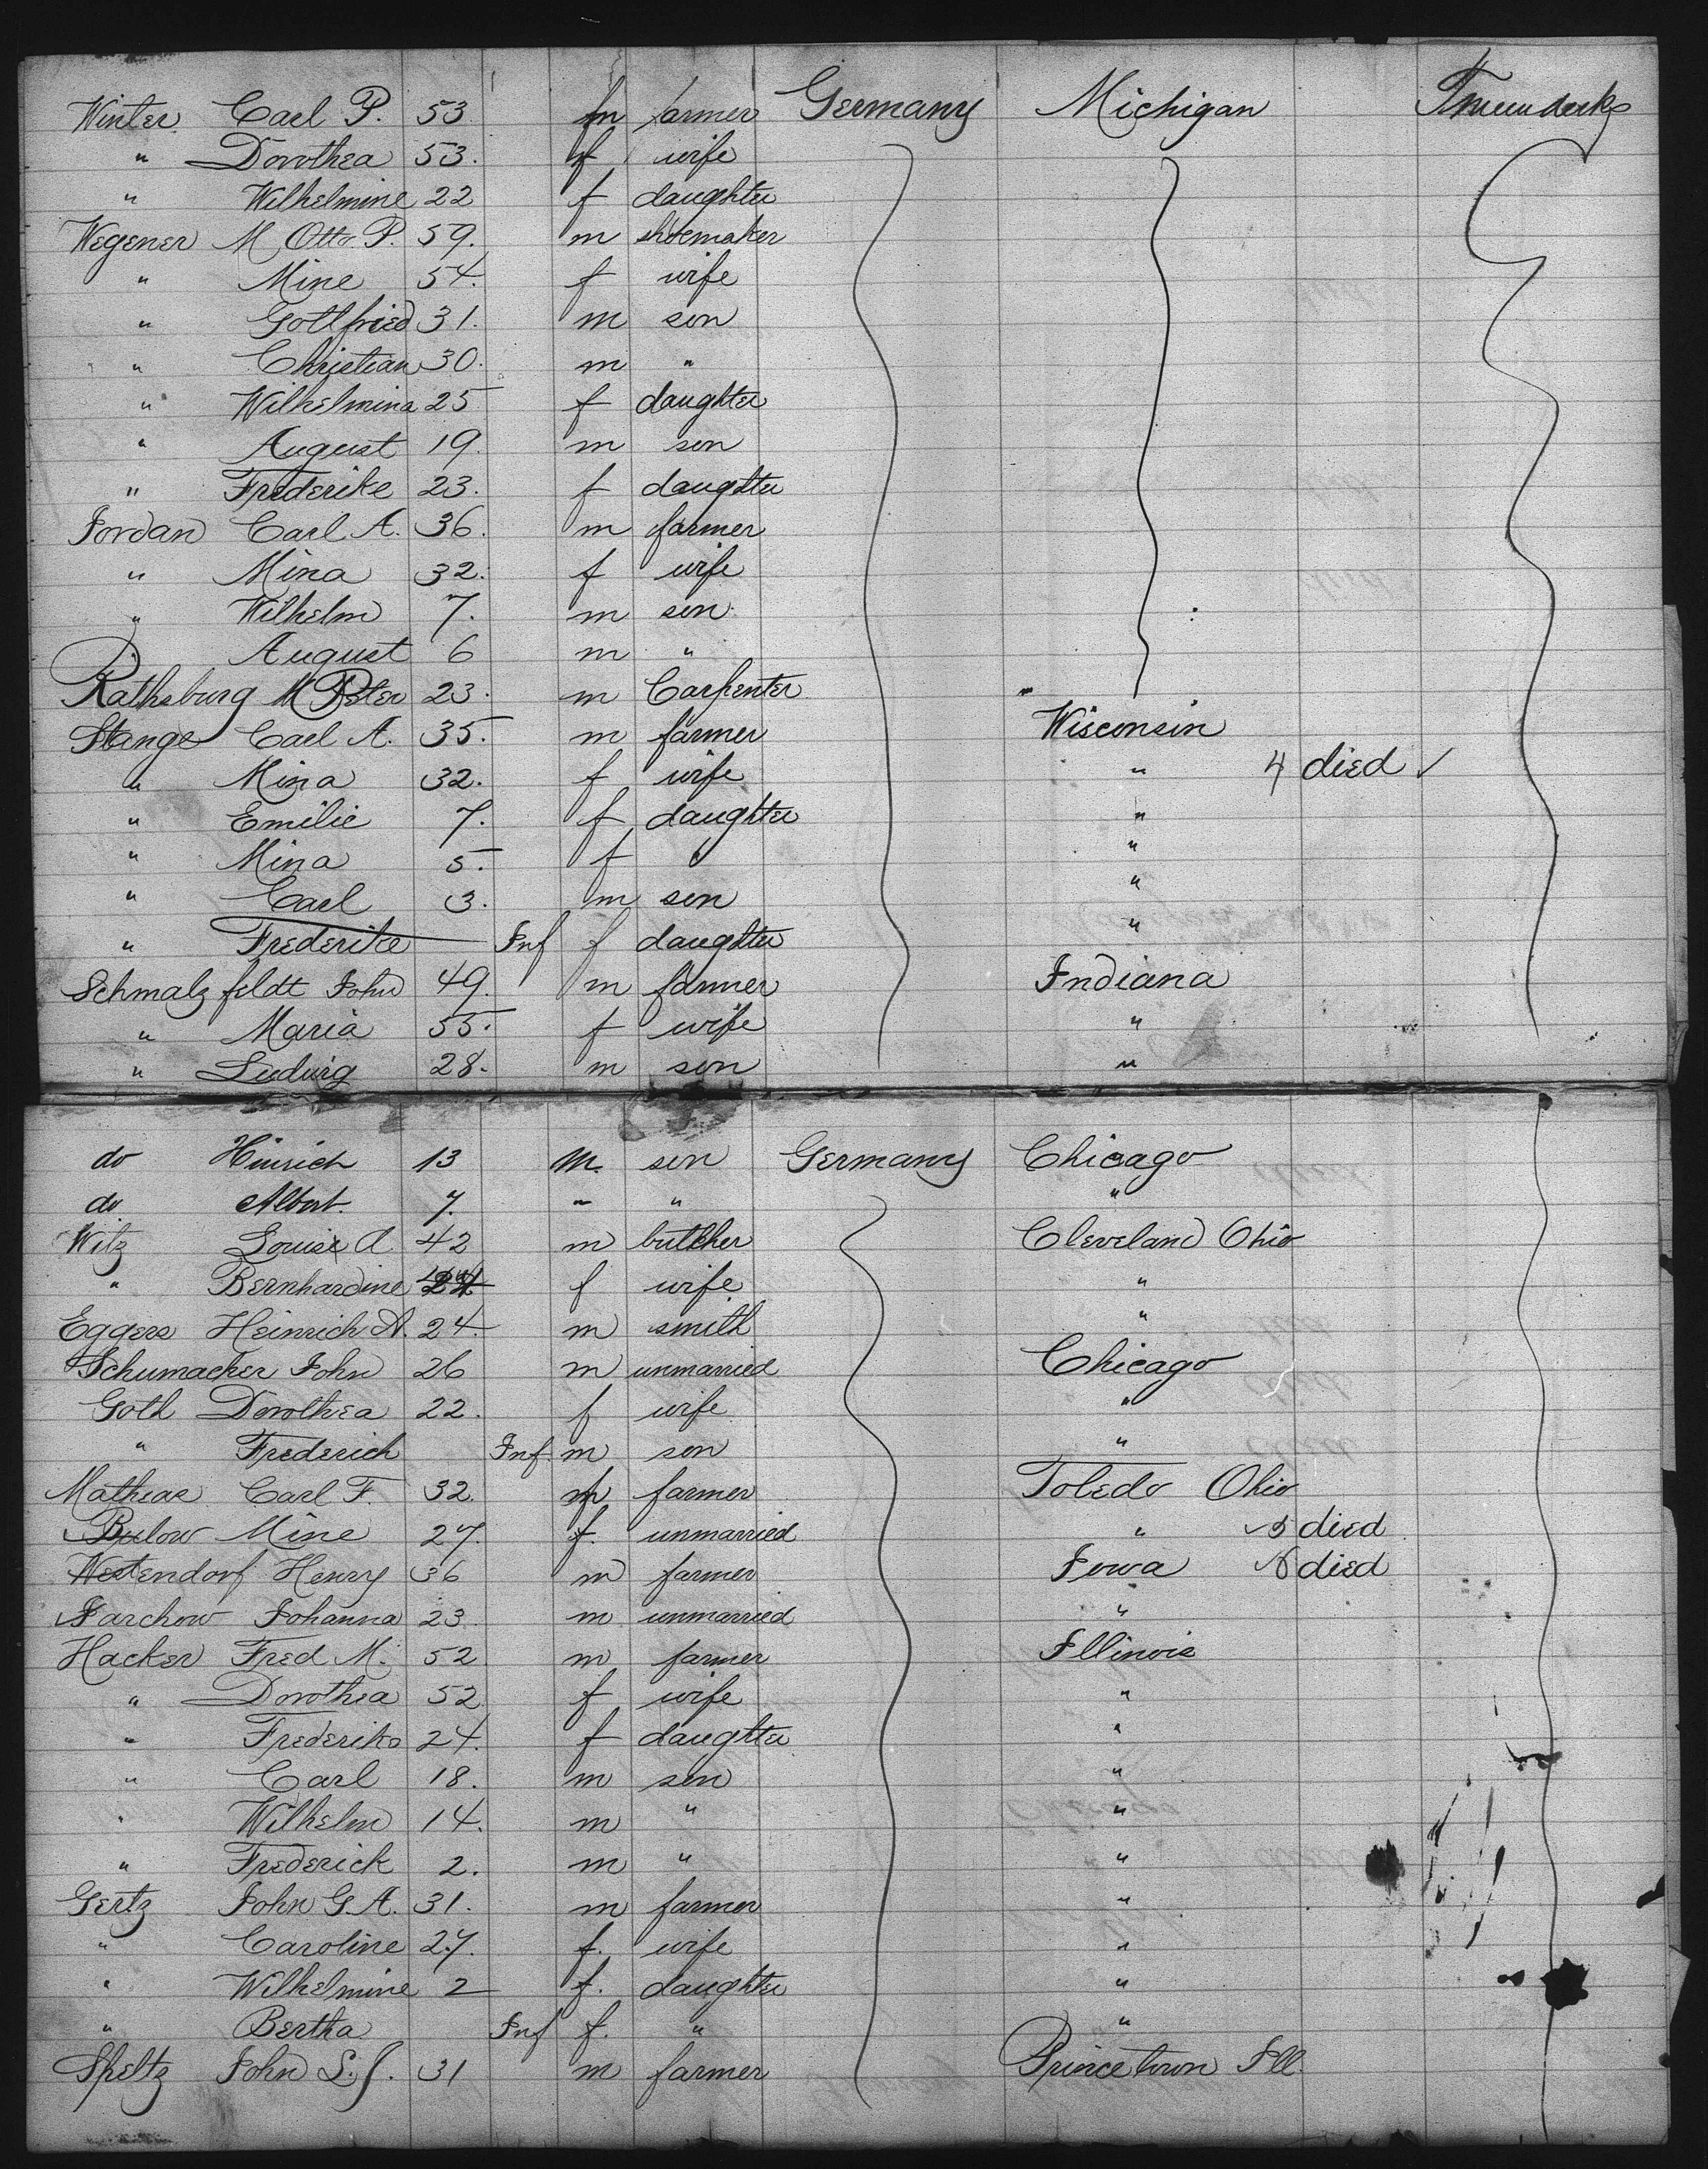 Winter Carl P. 53 m farmer Germany Michigan
" Dorothea 53. f wife
" Wilhelmine 22 f daughter
Wegener M Otto P. 59. m shoemaker
" Mine 54. f wife
" Gottfried 31. m son
" Christian 30. m "
" Wilhelmina 25 f daughter
" August 19. m son
" Frederike 23. f daughter
Jordan Carl A. 36. m farmer
" Mina 32. f wife
" Wilhelm 7. m son
" August 6 m "
Rathsburg M Peter 23. m Carpenter "
Stange Carl A. 35. m farmer Wisconsin
" Mina 32. f wife " 4 died ✓
" Emilie 7. f daughter "
" Mina 5. f "
" Carl 3. m son "
" Frederike Inf f daughter "
Schmalzfeldt John 49. m farmer Indiana
" Maria 55. f wife "
" Ludwig 28. m son "
do Hinrich 13 m. son Germany Chicago
do Albert. 7. " " "
Witz Louise A. 42 m butcher Cleveland Ohio
" Bernhardine f wife "
Eggers Heinrich A. 24. m smith "
Schumacker John 26 m unmarried Chicago
Goth Dorothea 22. f wife "
" Frederich Inf. m son "
Mathias Carl F. 32. m farmer Toledo Ohio
Bulow Mine 27. f. unmarried " died
Westendorf Henry 36 m farmer Iowa died
Jarchow Johanna 23. m unmarried "
Hacker Fred M. 52 m farmer Illinois
" Dorothea 52 f wife "
" Frederike 24. f daughter "
" Carl 18. m son "
" Wilhelm 14. m " "
" Frederick 2. m " "
Gertz John G. A. 31. m farmer "
" Caroline 27. f. wife "
" Wilhelmine 2 f. daughter "
" Bertha Inf f. " "
Speltz John L. J. 31 m farmer Princetown Ill.